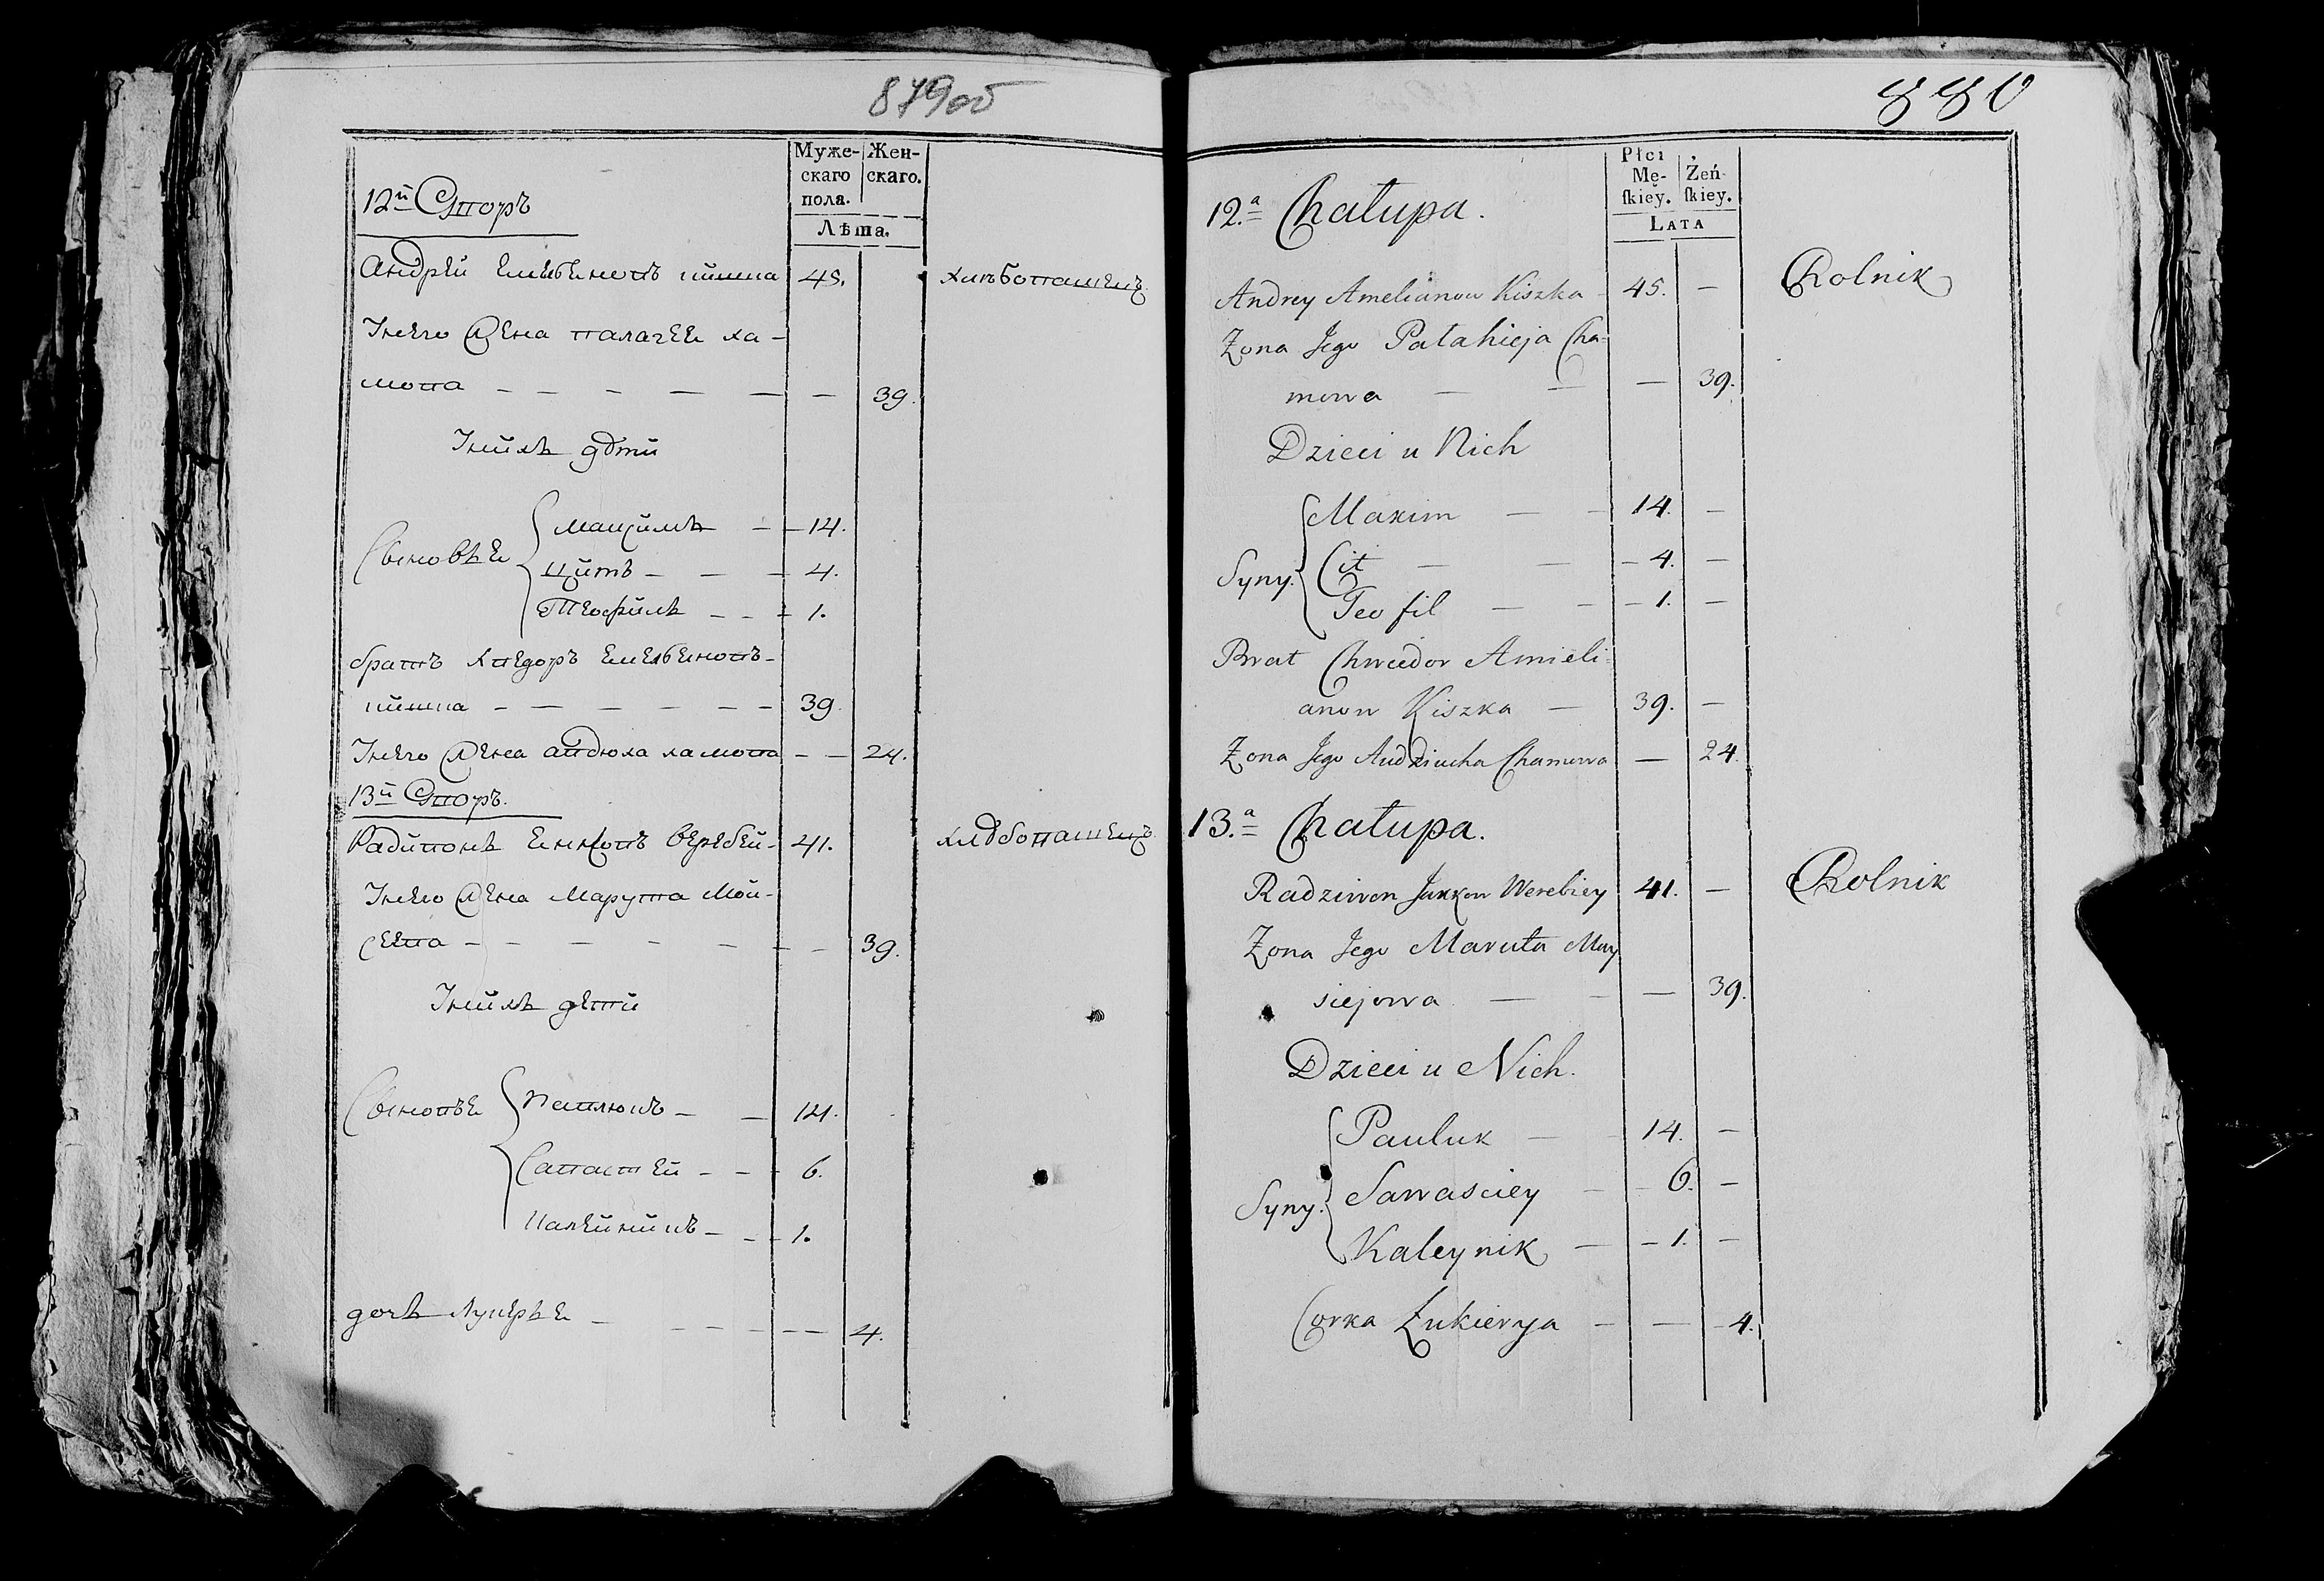 879об
Муже- Жен-
скаго скаго.
пола.
Лѣта.
12й Дворъ
Андрей Емельеновъ Кишка 45. хлѣбопашецъ
Инего жена палагея ха-
мова — — — — — — 39.
Инихъ дѣти
Сыновья
Максимъ — — 14.
Цитъ — — — 4.
Теофилъ — — — 1.
братъ хведоръ Емельеновъ-
кишка — — — — — — 39.
Инего жена авдюха хамова — — 24.
13й Дворъ.
Радивонъ Ем Веребей- 41. хлѣбопашецъ
Инего жена Марута Мой-
сеева — — — — — — — 39.
Инихъ дети
Сыновье
Павлюкъ — — 14.
Савастей — — 6.
Калейникъ — — — 1.
дочь Лукерья — — — — — — 4.
880
Płci
Mę- Żeń-
ſkiey. ſkiey.
LATA
12.a Chałupa.
Andrey Amelianow Kiszka — 45. — Rolnik
Żona Jego Pałahieja Cha=
mowa — — — 39.
Dzieci u Nich
Syny.
Maxim — — 14. —
Cit — — — 4. —
Teofil — — — 1. —
Brat Chwiedor Amieli=
anow Kiszka — 39. —
Żona Jego Audziucha Chamowa — 24.
13.a Chałupa.
Radziwon Werebiey 41. — Rolnik
Żona Jego Maruta May
siejowa — — — 39.
Dzieci u Nich.
Syny.
Pauluk — — 14. —
Sawasciey — — 6. —
Kaleynik — — 1. —
Corka Łukierya — — — 4.